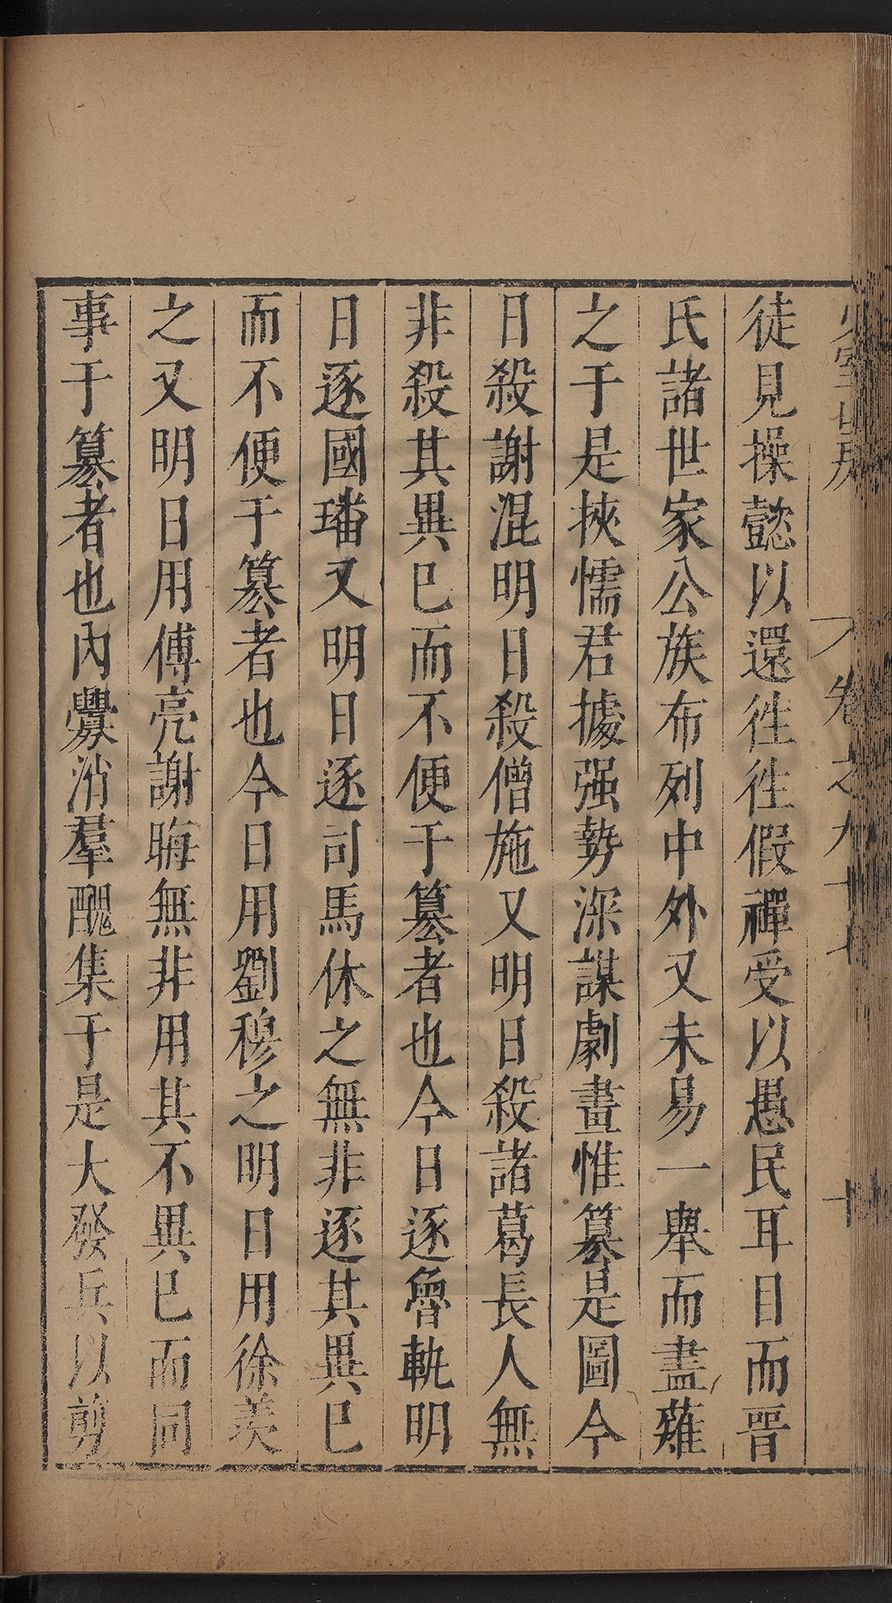 少室山房 卷之九十七 十
徒見操懿以還徃徃假禪受以愚民耳目而晋
氏諸世家公族布列中外又未易一舉而盡薙
之于是挾懦君據强勢深謀劇畫惟篡是圖今
日殺謝混明日殺僧施又明日殺諸葛長人無
非殺其異巳而不便于篡者也今日逐魯軌明
日逐國璠又明日逐司馬休之無非逐其異巳
而不便于篡者也今日用劉穆之明日用徐羡
之又明日用傅亮謝晦無非用其不異巳而同
事于篡者也內釁消羣醜集于是大發兵以剪